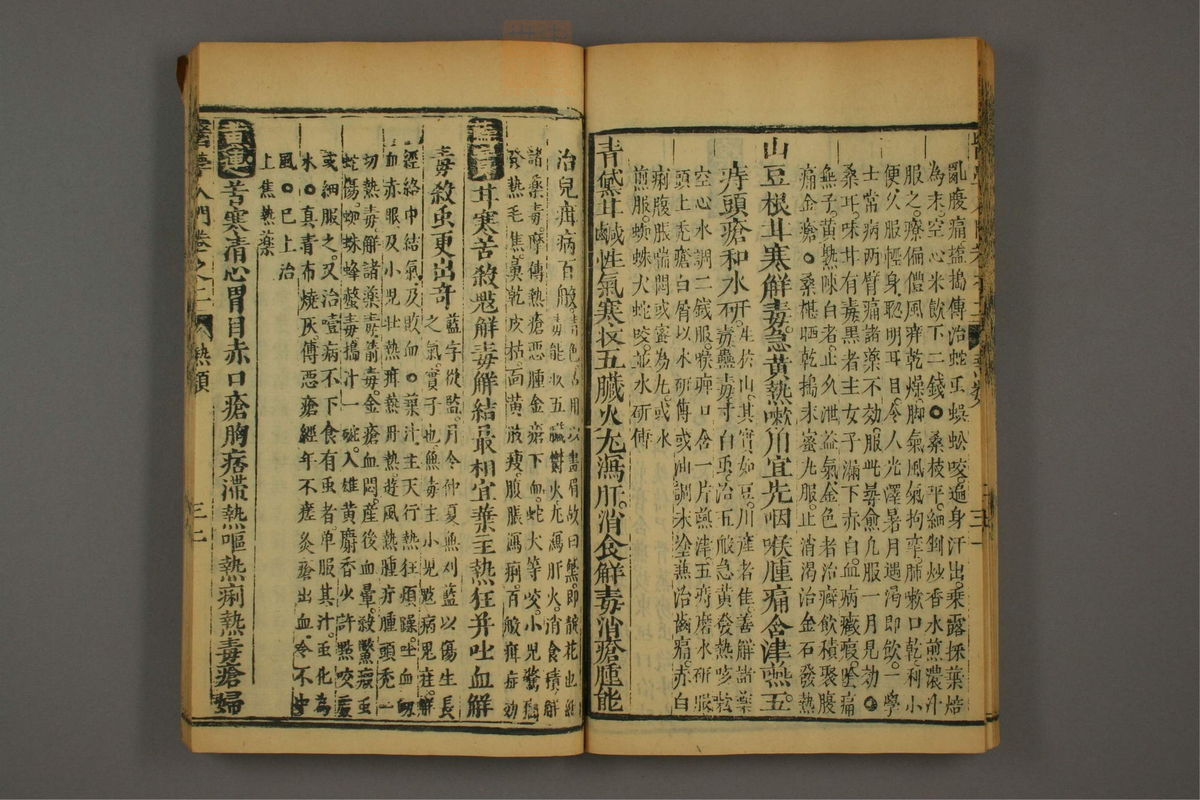 亂腹痛搵搗傳治蛇虫蜈蚣咬遍身汗出乘露採葉焙
為末空心米飲下二錢○桑枝平細剉炒香水煎濃汁
服之療偏體風痒乾燥脚氣風氣拘攣肺嗽口乾利小
便久服輕身聡明耳目令人光澤暑月遇渴即飲一學
士常病两臂痛諸藥不効服此尋愈凡服一月見効○
桑耳味甘有毒黒者主女子滿下赤白血病癥瘕陰痛
無子黃熟陳白者止久泄益氣金色者治癖飲積聚腹
痛金瘡○桑椹晒乾搗末蜜丸服止消渴治金石發熱
山豆根甘寒解毒急黃熱嗽用宜先咽喉腫痛含津嚥五
痔頭瘡和水研
生於山其實如豆川産者佳善解諸藥
毒蠱毒寸白虫治五般急黃發熱咳嗽
空心水調二錢服喉痺口含一片嚥津五痔磨水研服
頭上禿瘡白屑以水研傳或油調末塗兼治齒痛赤白
痢腹脹喘悶或蜜為丸或水
煎服蜘蛛犬蛇咬並水研傳
青黛甘鹹性氣寒收五臟火尤瀉肝消食解毒消瘡腫能
治兒疳病百般
能收五臟鬱火尤瀉肝火消食積解
諸藥毒摩傳熱瘡惡腫金瘡下血蛇犬等咬小兒驚癇
發熱毛焦鼻乾皮枯面黃肌瘦腹脹瀉痢百般疳症効
藍實甘寒苦殺䰡解毒解結最相宜葉主熱狂并吐血解
毒殺虫更出奇
藍字從監月令仲夏無刈藍以傷生長
之氣實子也無毒主小兒
經絡中結氣及敗血○葉汁主天行熱狂煩躁吐血衂
血赤眼及小兒壮熱疳熱丹熱遊風熱腫疔腫頭禿一
切熱毒解諸藥毒箭毒金瘡血悶産後血暈殺鱉瘕虫
蛇傷蜘蛛蜂螫毒搗汁一碗入雄黃麝香少許點咬處
或細服之又治一壹病不下食有虫者单服其汁虫化為
水○真青布燒灰傅惡瘡經年不瘥灸瘡出血令不中
風○巳上治
上焦熱藥
黃連苦寒清心胃目赤口瘡胸痞滯熱嘔熱痢熱毒瘡婦
醫學入門卷之二
熱類
三十一